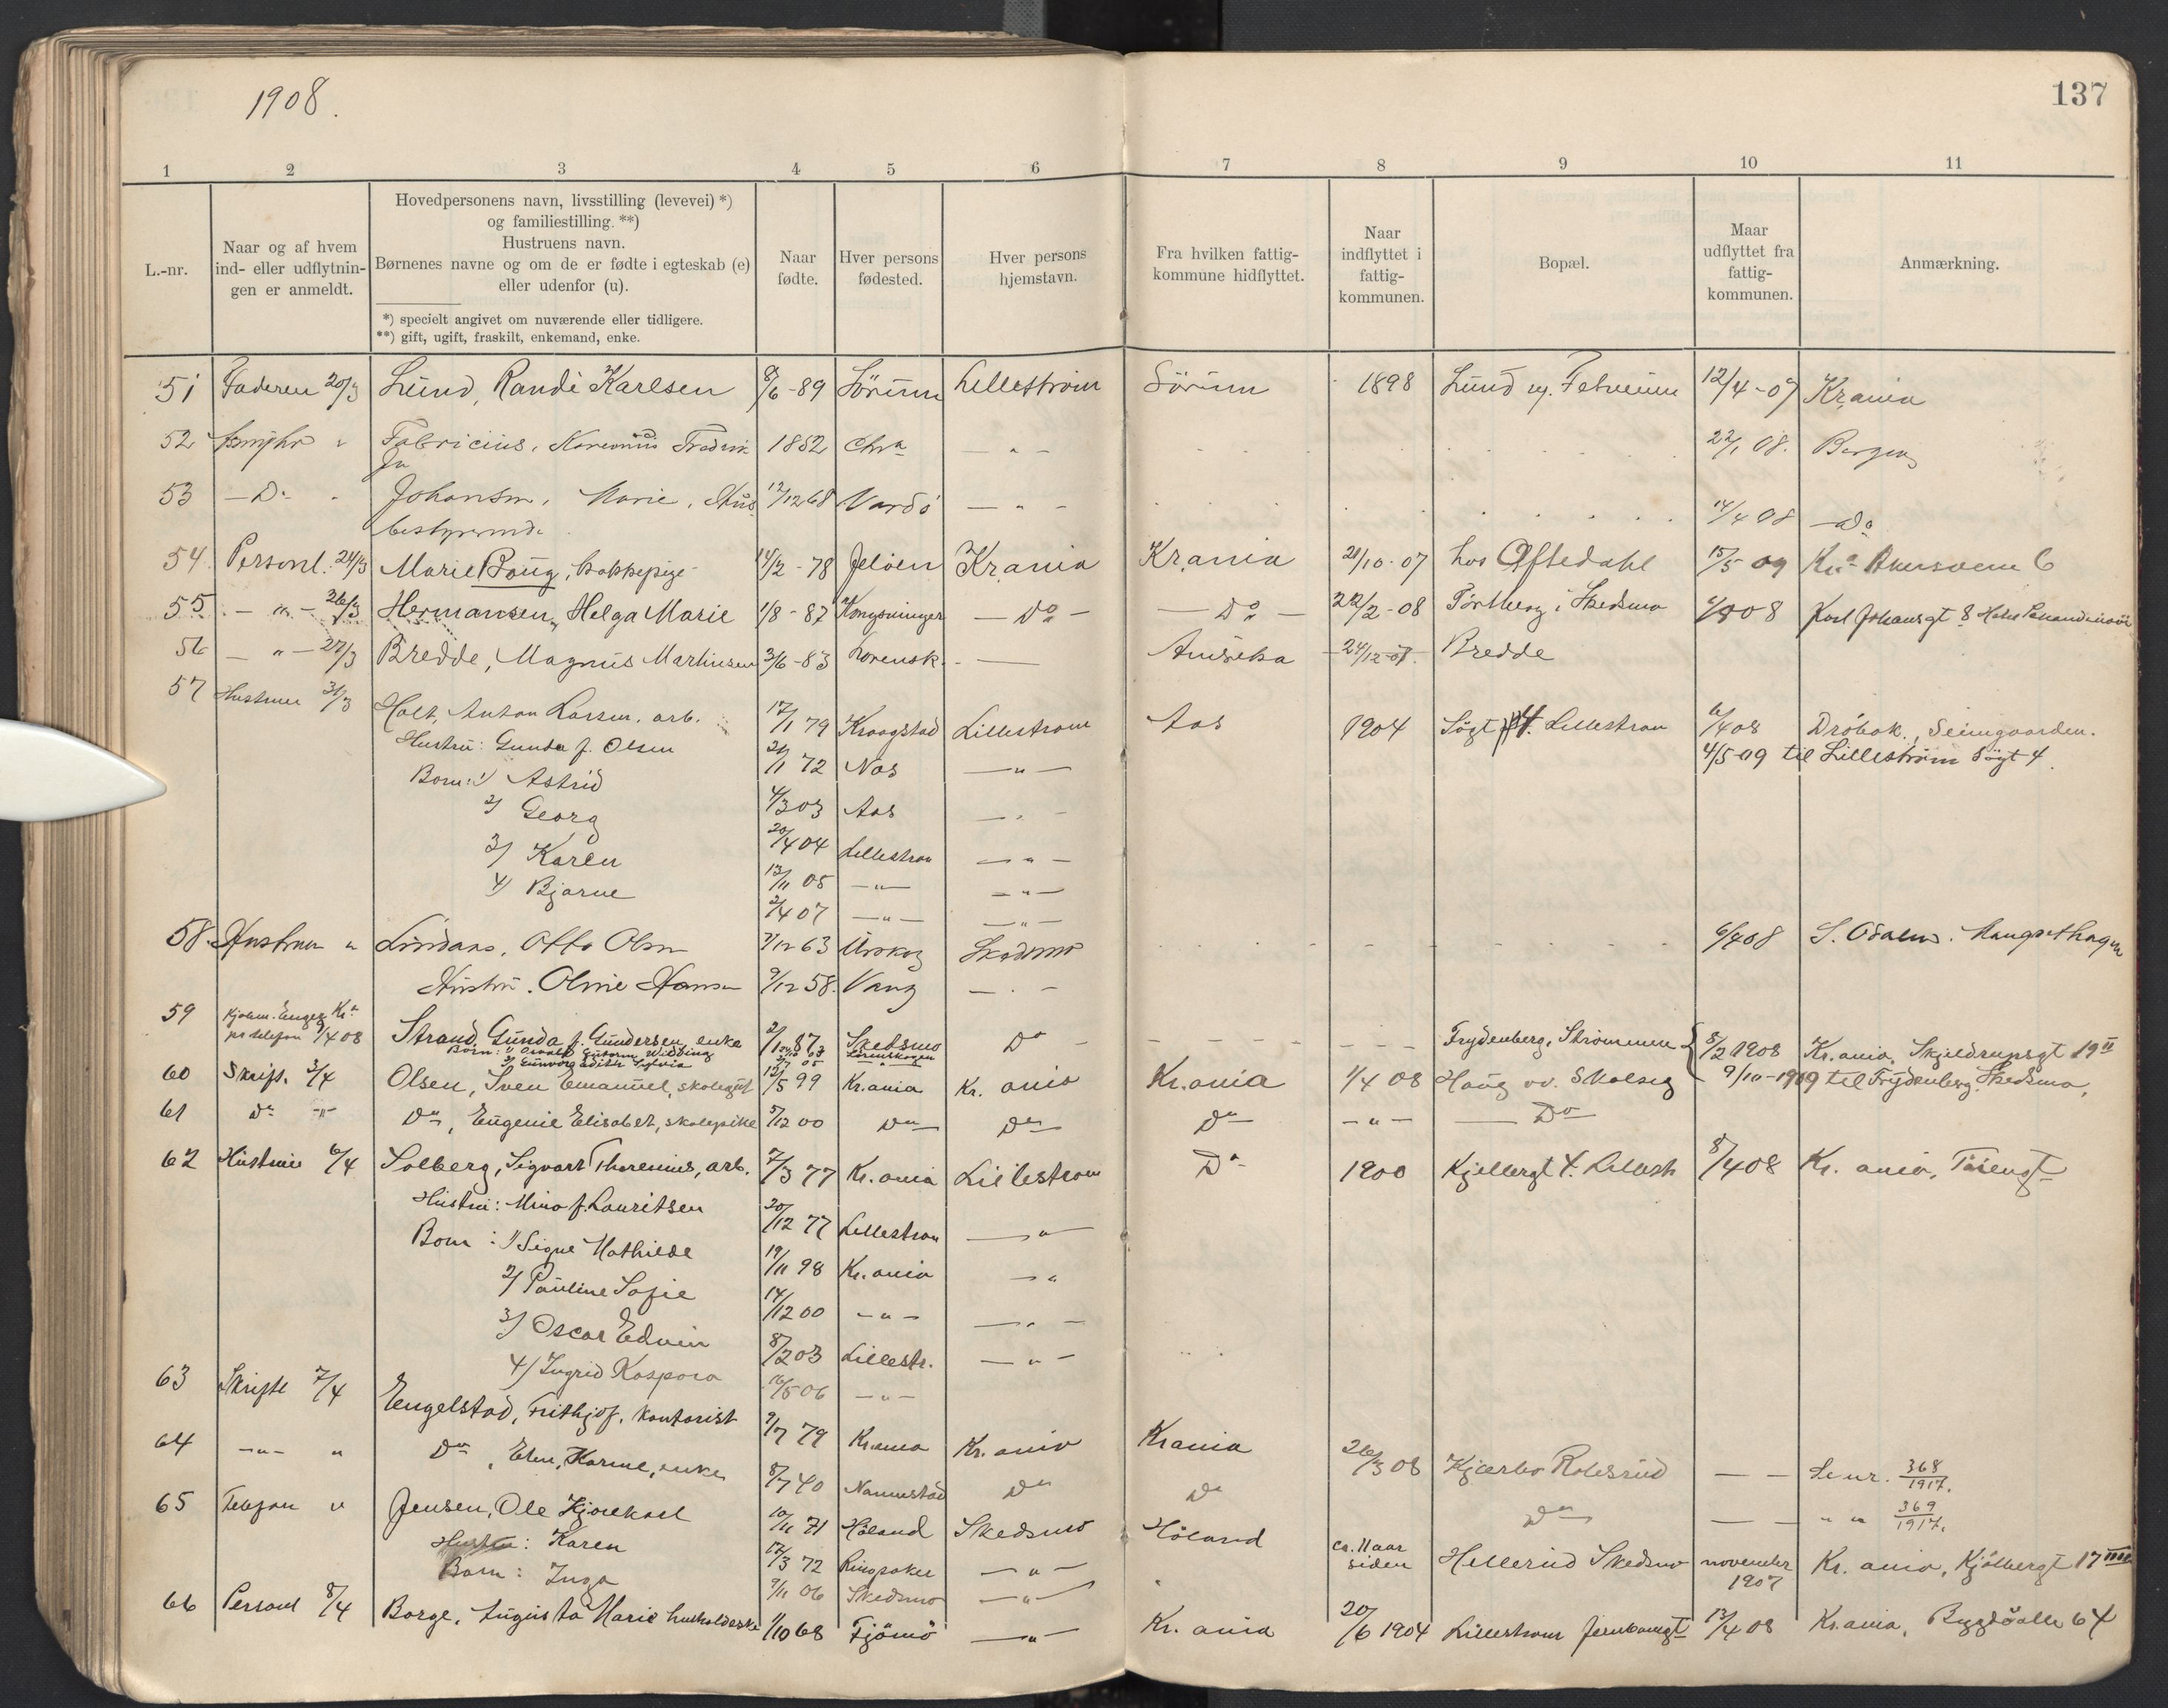 1908.
137
1 2 3 4 5 6 7 8 9 10 11
L.-nr.
Naar og af hvem
ind- eller udflytnin-
gen er anmeldt.
Hovedpersonens navn, livsstilling (levevei) *)
og familiestilling. **)
Hustruens navn.
Børnenes navne og om de er fødte i egteskab (e)
eller udenfor (u).
*) specielt angivet om nuværende eller tidligere.
**) gift, ugift, fraskilt, enkemand, enke.
Naar
fødte.
Hver persons
fødested.
Hver persons
hjemstavn.
Fra hvilken fattig-
kommune hidflyttet.
Naar
indflyttet i
fattig-
kommunen.
Bopæl.
Maar
udflyttet fra
fattig-
kommunen.
Anmærkning.
51 Faderen 20/3 Lund, Randi Karlsen 8/6-89 Sörum Lilleström Sörum 1898 Lund Fetveien 12/4-07 Krania
52 " Fabricius, Fredrik 1852 Chra — " — 22/1 08. Bergen
Fr
53 — Do Johansen, Marie, Hus- 12/12 68 Vardö — " — 14/4 08 — Do
bestyrerinde
54 Personl. 24/3 Marie Boug, kokkepige 14/2-78 Jelöen Krania Krania 21/10-07 hos Oftedahl 15/5 09 Kra Akersveien 6
55 — " — 26/3 Hermansen, Helga Marie 1/8-87 Kongsvinger — Do — — Do — 22/2-08 Törtberg i Skedsmo Karl Johansgt 8
56 — " — 27/3 Bredde, Magnus Martinsen 3/6-83 Lörensk. — Amerika 24/12-07. Bredde
57 Hustruen 31/3 Holt, Anton Larsen. arb. 17/1 79 Kraagstad Lilleström Aas 1904 Sögt 4. Lillestrøm 6/4 08 Dröbak, Seimgaarden.
Hustru: Gunda f. Olsen 21/1 72 Aas — " — 4/5-09 til Lilleström Sögt 4.
Born: 1/ Astrid 4/3 03 Aas — " —
2/ Georg 20/4 04 Lillestrøm — " —
3/ Karen 13/11 05 — " — — " —
4/ Bjarne 2/4 07 — " — — " —
58. Hustruen " Lindaas, Otto Olsen 7/12 63 Urskog Skedsmo 6/4 08 S. Odalen.
Hustru. Oline Hansen 9/12 58. Vang — " —
59 Enger Kra
pr telefon 9/4 08 Strand, Gunda f. Gundersen, enke 2/1 87 Skedsmo Do Frydenberg, Strømmen 8/2 1908 Kr.ania, Skjeldrupsgt 19 II
Børn: 1/ Osvald Gutorm Wilding Lörenskogen
2/ Gunvor Edith Sylvia 9/10-1909 til Frydenberg, Skedsmo,
60 Skrift. 3/4 Olsen, Sven Emanuel, skolegut 12/5 99 Kr.ania Kr. ania Kr.ania 1/4 08 Haug v. Skolseg
61 Do — " — Do, Eugenie Elisabet, skolepike 5/12 00 Do Do Do — " — — Do
62 Hustruen 6/4 Solberg, Sigvart Thorenius, arb. 7/3 77 Kr. ania Lilleström Do 1900 Kjellergt 4. Lillestr 8/4 08 Kr. ania, Töiengt
Hustru: Mina f. Lauritsen 20/12 77 Lillestrøm — " —
Born: 1/ Signe Mathilde 19/11 98 Kr. ania — "
2/ Pauline Sofie 14/12 00 — " — — " —
3/ Oscar Edvin 8/2 03 Lillestr. — " —
4/ Ingrid Kaspara 16/5 06 — " —
63 Skriftl 7/4 Engelstad, Frithjof, kontorist 9/7 79 Kr.ania Kr. ania Krania 26/3 08 Kjærbo Robsrud — — Lnr. 368/1917.
64 — " — " Do, Karine, enke 8/7 40 Nannestad Do Do Do — — " " 369/1917.
65 Telefon " Jensen, Ole 10/11 71 Höland Skedsmo Höland ca. 11 aar siden Hellerud Skedsmo november 1907 Kr. ania, Kjölbergt 17 IIII
Hustru: Karen 12/3 72 Ringsaker — " —
Born: Inga 9/11 06 Skedsmo — " —
66 Personl 8/4 Borge, Augusta Marie husholderske 1/10 68 Tjömö — " — Kr. ania 20/6 1904 Lillestrøm Jernbanegt 13/4 08 Kr.ania, Bygdöalle 64